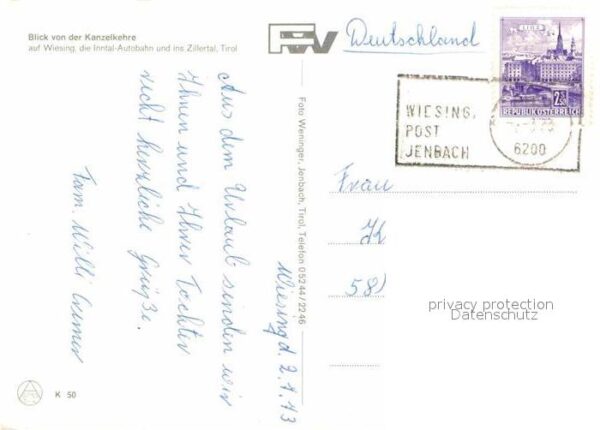 Blick von der Kanzelkehre
auf Wiesing, die Inntal-Autobahn und ins Zillertal, Tirol
Wiesing d. 2.1.73
Aus dem Urlaub sinden wir
Ihnen und Ihrer Tochter
recht herzliche Grüße.
Fam. Willi
K 50
Foto Weninger, Jenbach, Tirol, Telefon 05244/2246
Deutschland
LINZ
REPUBLIK ÖSTERREICH
WIESING,
POST
JENBACH
6200
Frau
58)
privacy protection
Datenschutz